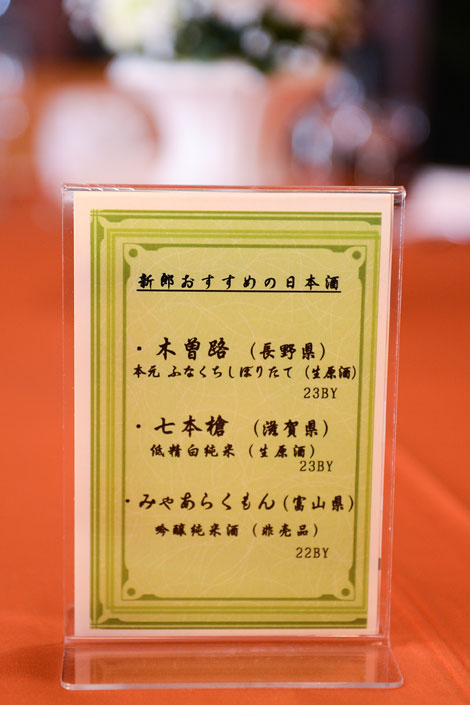 新郎おすすめの日本酒
・木曽路（長野県）
本元 ふなくちしぼりたて（生原酒）
23BY
・七本槍（滋賀県）
低精白純米（生原酒）
23BY
・みゃあらくもん（富山県）
吟醸純米酒（非売品）
22BY